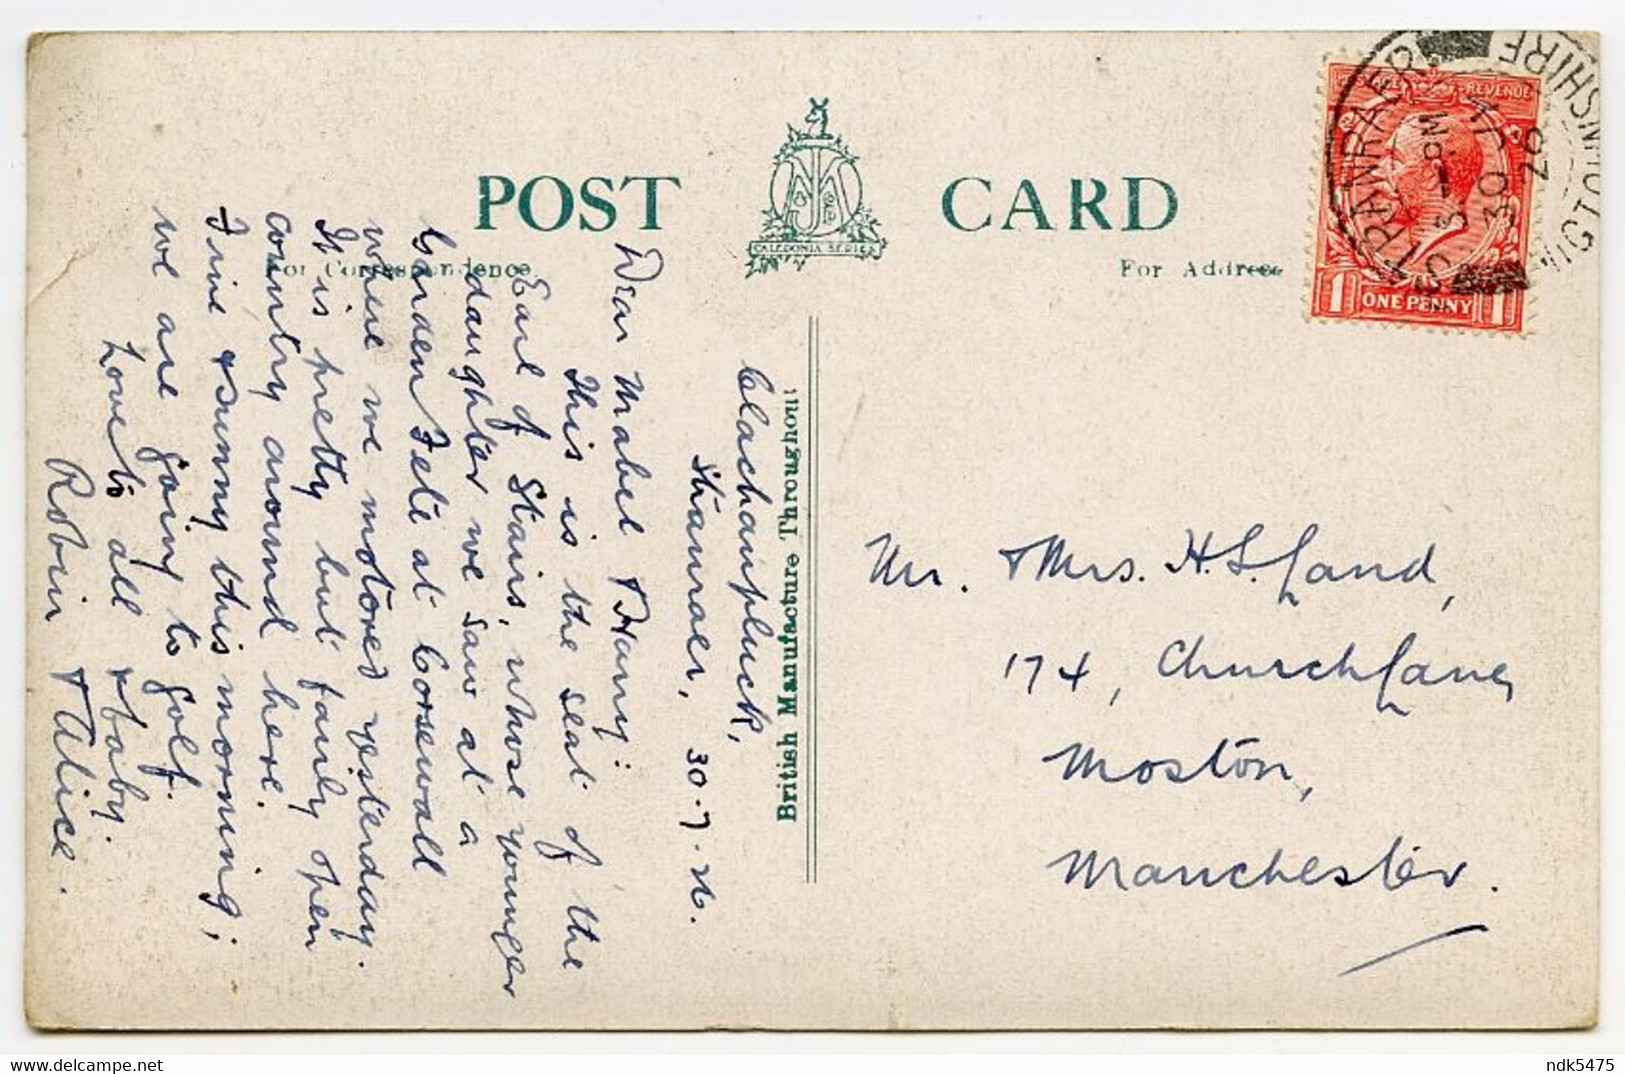 POST CARD
CALEDONIA SERIES
For Correspondence.
For Address
British Manufacture Throughout
POSTAGE REVENUE
1 ONE PENNY 1
STRANRAER
WIGTOWNSHIRE
30 JY
26
Clachanpluck,
Stranraer, 30.7.26.
Dear Mabel & Harry:
This is the seat of the
Earl of Stairs, whose younger
daughter we saw at a
Garden Fete at Corsewall
where we motored yesterday.
It is pretty but fairly open
country around here.
Fine & sunny this morning;
we are going to golf.
Love to all & baby.
Robin & Alice.
Mr. & Mrs. H. S. Land,
174, Church Lane,
Moston,
Manchester.
ndk5475